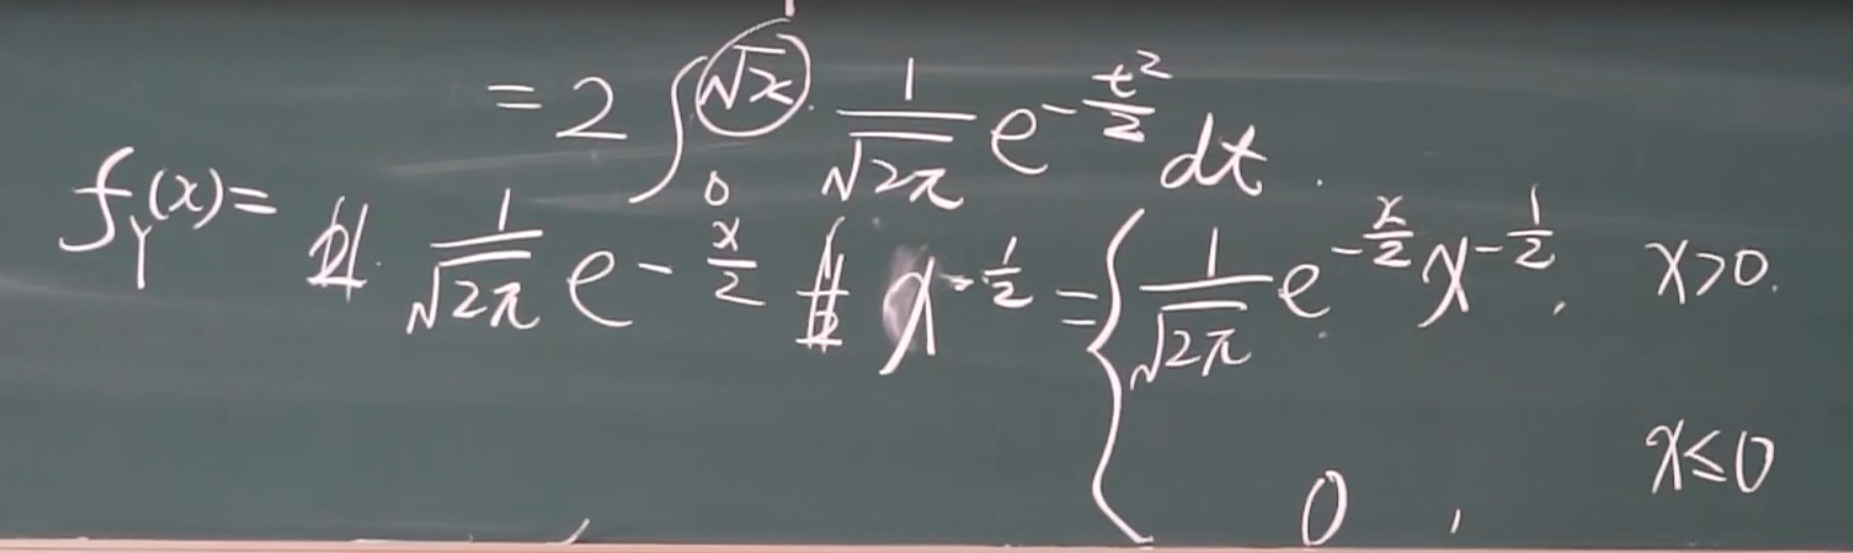 = 2 ∫₀^{√x} 1/√(2π) e^{-t²/2} dt.
f_Y(x) = 2 · 1/√(2π) e^{-x/2} 1/2 x^{-1/2} = { 1/√(2π) e^{-x/2} x^{-1/2}, x>0.
0, x≤0